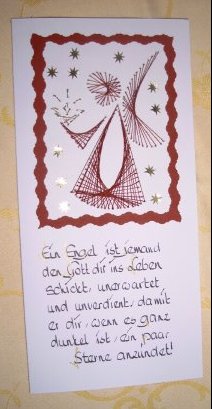 Ein Engel ist jemand
den Gott dir ins Leben
schickt, unerwartet
und unverdient, damit
er dir, wenn es ganz
dunkel ist, ein paar
Sterne anzündet!